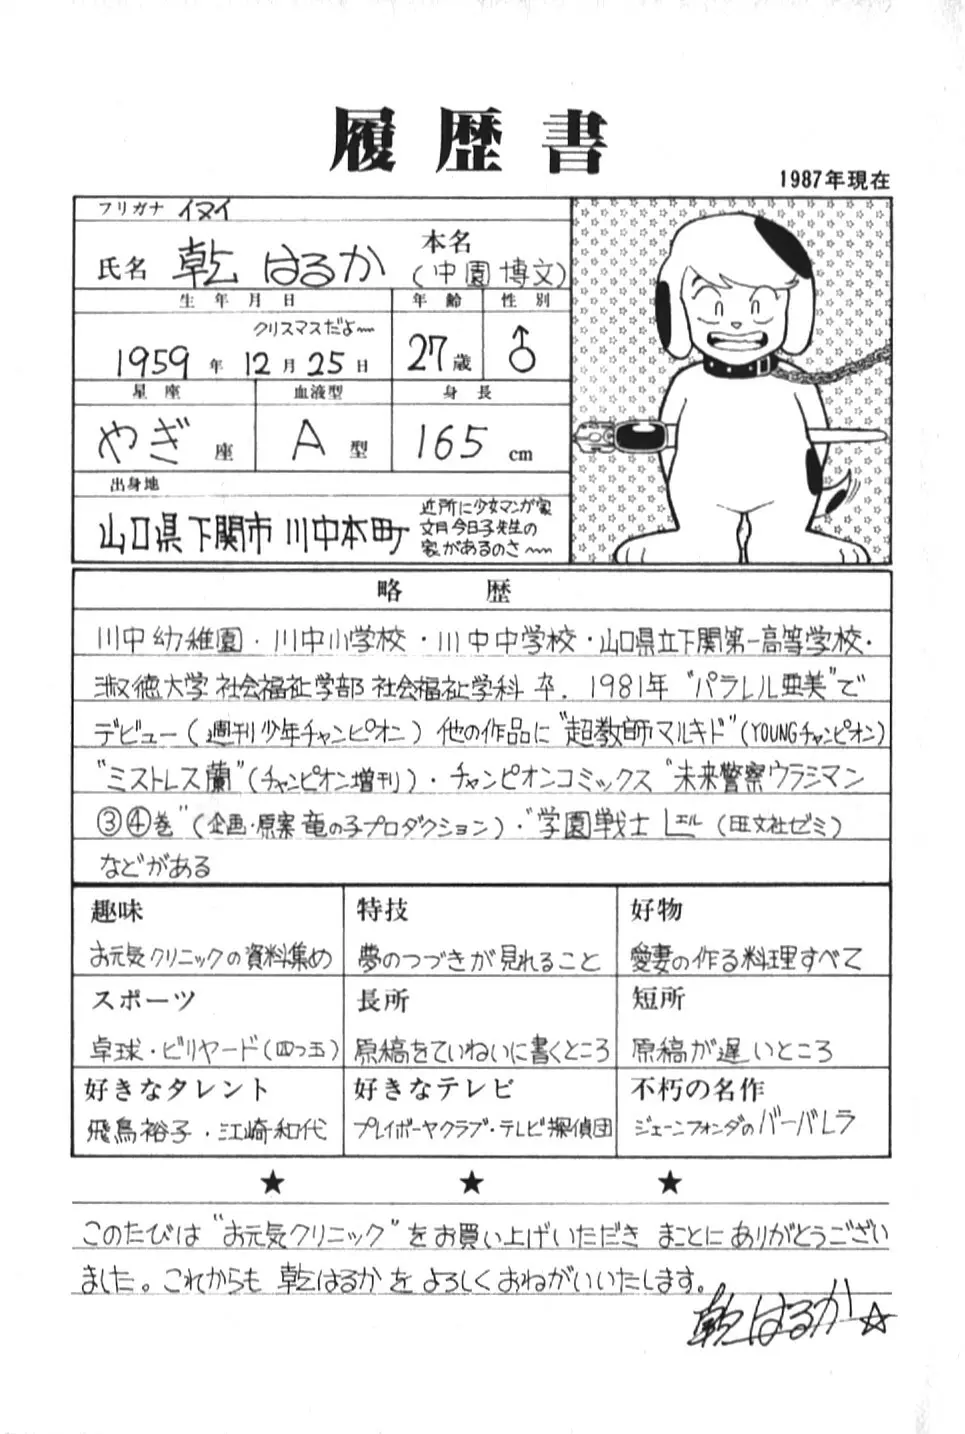 履歴書
1987年現在
フリガナ イヌイ
氏名 乾 はるか 本名(中園 博文)
生年月日 年齢 性別
クリスマスだよ〜
1959年 12月25日 27歳 ♂
星座 血液型 身長
やぎ座 A型 165cm
出身地
山口県下関市川中本町
近所に少女マンガ家
文月今日子先生の
家があるのさ〜
略歴
川中幼稚園・川中小学校・川中中学校・山口県立下関第一高等学校・
淑徳大学社会福祉学部社会福祉学科卒.1981年“パラレル亜美”で
デビュー(週刊少年チャンピオン)他の作品に“超教師マルキド”(YOUNGチャンピオン)
“ミストレス蘭”(チャンピオン増刊)・チャンピオンコミックス“未来警察ウラシマン
③④巻”(企画・原案 竜の子プロダクション)・“学園戦士L エル(旺文社ゼミ)
などがある
趣味 特技 好物
お元気クリニックの資料集め 夢のつづきが見れること 愛妻の作る料理すべて
スポーツ 長所 短所
卓球・ビリヤード(四つ玉) 原稿をていねいに書くところ 原稿が遅いところ
好きなタレント 好きなテレビ 不朽の名作
飛鳥裕子・江崎和代 プレイボーヤクラブ・テレビ探偵団 ジェーンフォンダのバーバレラ
★ ★ ★
このたびは“お元気クリニック”をお買い上げいただき まことにありがとうござい
ました。これからも 乾はるかをよろしくおねがいいたします。
乾はるか☆